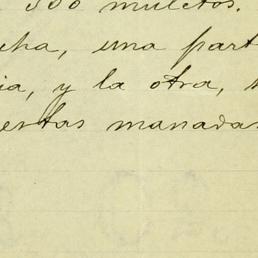 300 muletos.
cha, una part
ia, y la otra,
ertas manadas